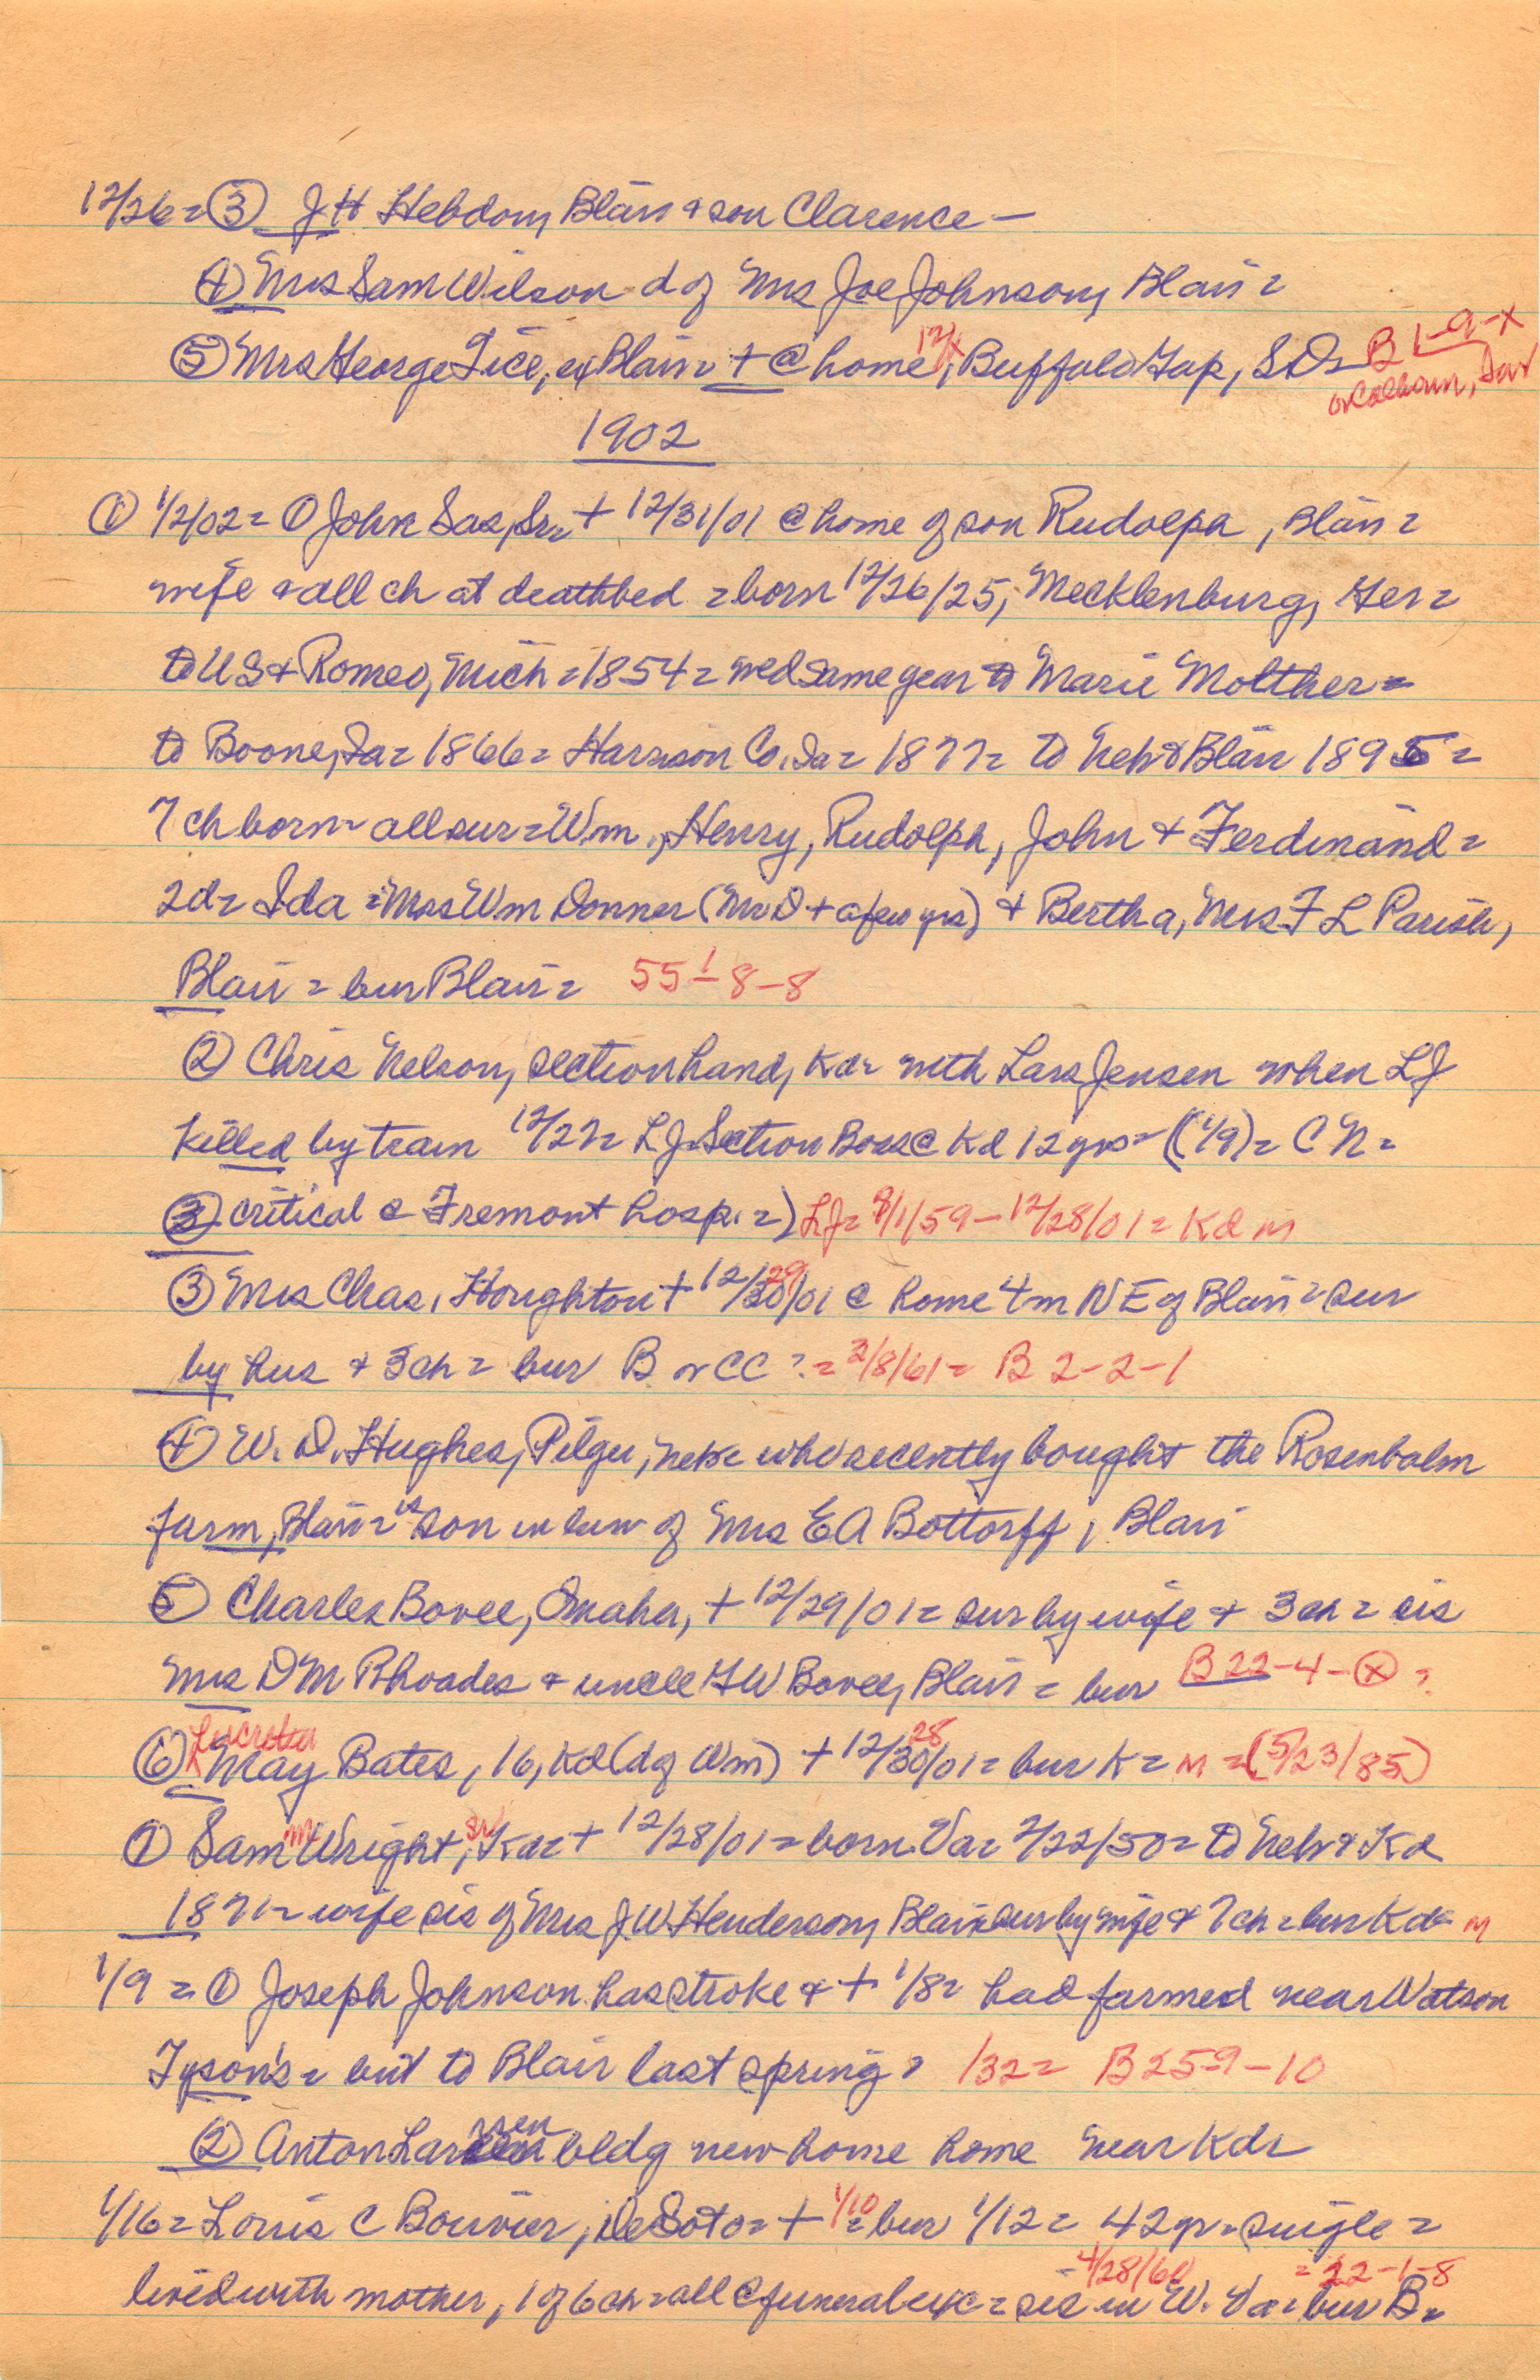 12/26 = ③ J H Hebdon, Blair & son Clarence —
④ Mrs Sam Wilson d of Mrs Joe Johnson, Blair =
⑤ Mrs George Tice, ex Blair = + @ home, 12/ Buffalo Gap, SD = B 1-9-x
or Calhoun,
1902
① 1/2/02 = ① John Sas, Sr = + 12/31/01 @ home of son Rudolph, Blair =
wife & all ch at deathbed = born 12/26/25, Mecklenburg, Ger =
to US & Romeo, Mich = 1854 = wed same year to Marie Molther =
to Boone, Ia = 1866 = Harrison Co. Ia = 1877 = to Neb & Blair 1895 =
7 ch born = all sur = Wm., Henry, Rudolph, John & Ferdinand =
2 d = Ida = Mrs Wm Donner (Mr D + a few yrs) & Bertha, Mrs F L Parish,
Blair = bur Blair = 55-1-8-8
② Chris Nelson, section hand, Kd = with Lars Jensen when LJ
killed by train 12/27 = LJ Section Boss @ Kd 12 yrs = ((1/9) = C N =
③ critical @ Fremont hosp. =) LJ = 8/1/59 - 12/28/01 = Kd m
③ Mrs Chas. Houghton + 12/30/01 29 @ home 4 m NE of Blair = sur
by hus & 3 ch = bur B or CC ? = 2/8/61 = B 2-2-1
④ W. D. Hughes, Pilger, Neb = who recently bought the Rosenbalm
farm, Blair = is son in law of Mrs E A Bottorff, Blair
⑤ Charles Bovee, Omaha, + 12/29/01 = sur by wife & 3 ch = sis
Mrs D M Rhoades & uncle G W Bovee, Blair = bur B 22-4-ⓧ ?
⑥ Lucretia May Bates, 16, Kd (d of Wm) + 12/30/01 28 = bur K = m = (5/23/85)
⑦ Sam m Wright, Sr Kd = + 12/28/01 = born Va = 2/22/50 = to Neb & Kd
1871 = wife sis of Mrs J W Henderson, Blair = sur by wife & 7 ch = bur Kd = m
1/9 = ① Joseph Johnson has stroke & + 1/8 = had farmed near Watson
Tyson's = but to Blair last spring = 132 = B 25-9-10
② Anton Larssen bldg new home home near Kd =
1/16 = Louis C Bouvier, DeSoto = + 1/10 = bur 1/12 = 42 yr = single =
lived with mother, 1 of 6 ch = all @ funeral exc = sis in W. Va = bur B =
- 4/28/60 = 22-1-8